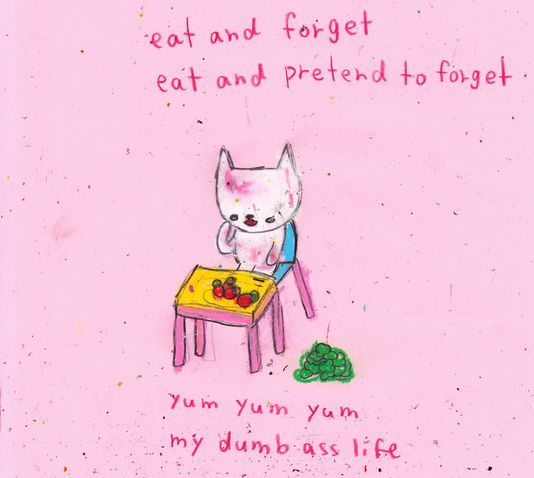 eat and forget
eat and pretend to forget.
yum yum yum
my dumb ass life